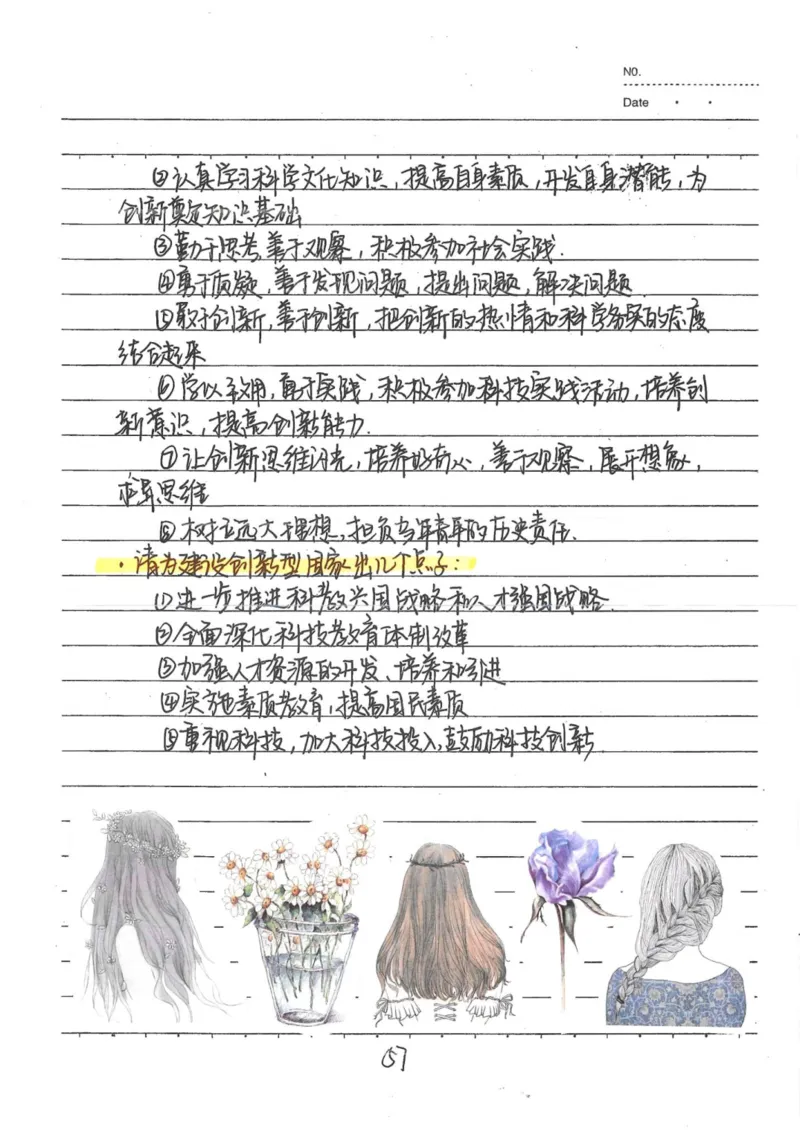 NO.
Date
②认真学习科学文化知识，提高自身素质，开发自身潜能，为
创新奠定知识基础
③勤于思考，善于观察，积极参加社会实践.
④勇于质疑，善于发现问题，提出问题，解决问题
⑤敢于创新，善于创新，把创新的热情和科学务实的态度
结合起来
⑥学以致用，勇于实践，积极参加科技实践活动，培养创
新意识，提高创新能力.
⑦让创新思维闪光，培养好奇心，善于观察，展开想象，
求异思维
⑧树立远大理想，担负当年青年的历史责任.
·请为建设创新型国家出几个点子：
①进一步推进科教兴国战略和人才强国战略.
②全面深化科技教育体制改革
③加强人才资源的开发、培养和引进
④实施素质教育，提高国民素质
⑤重视科技，加大科技投入，鼓励科技创新.
57